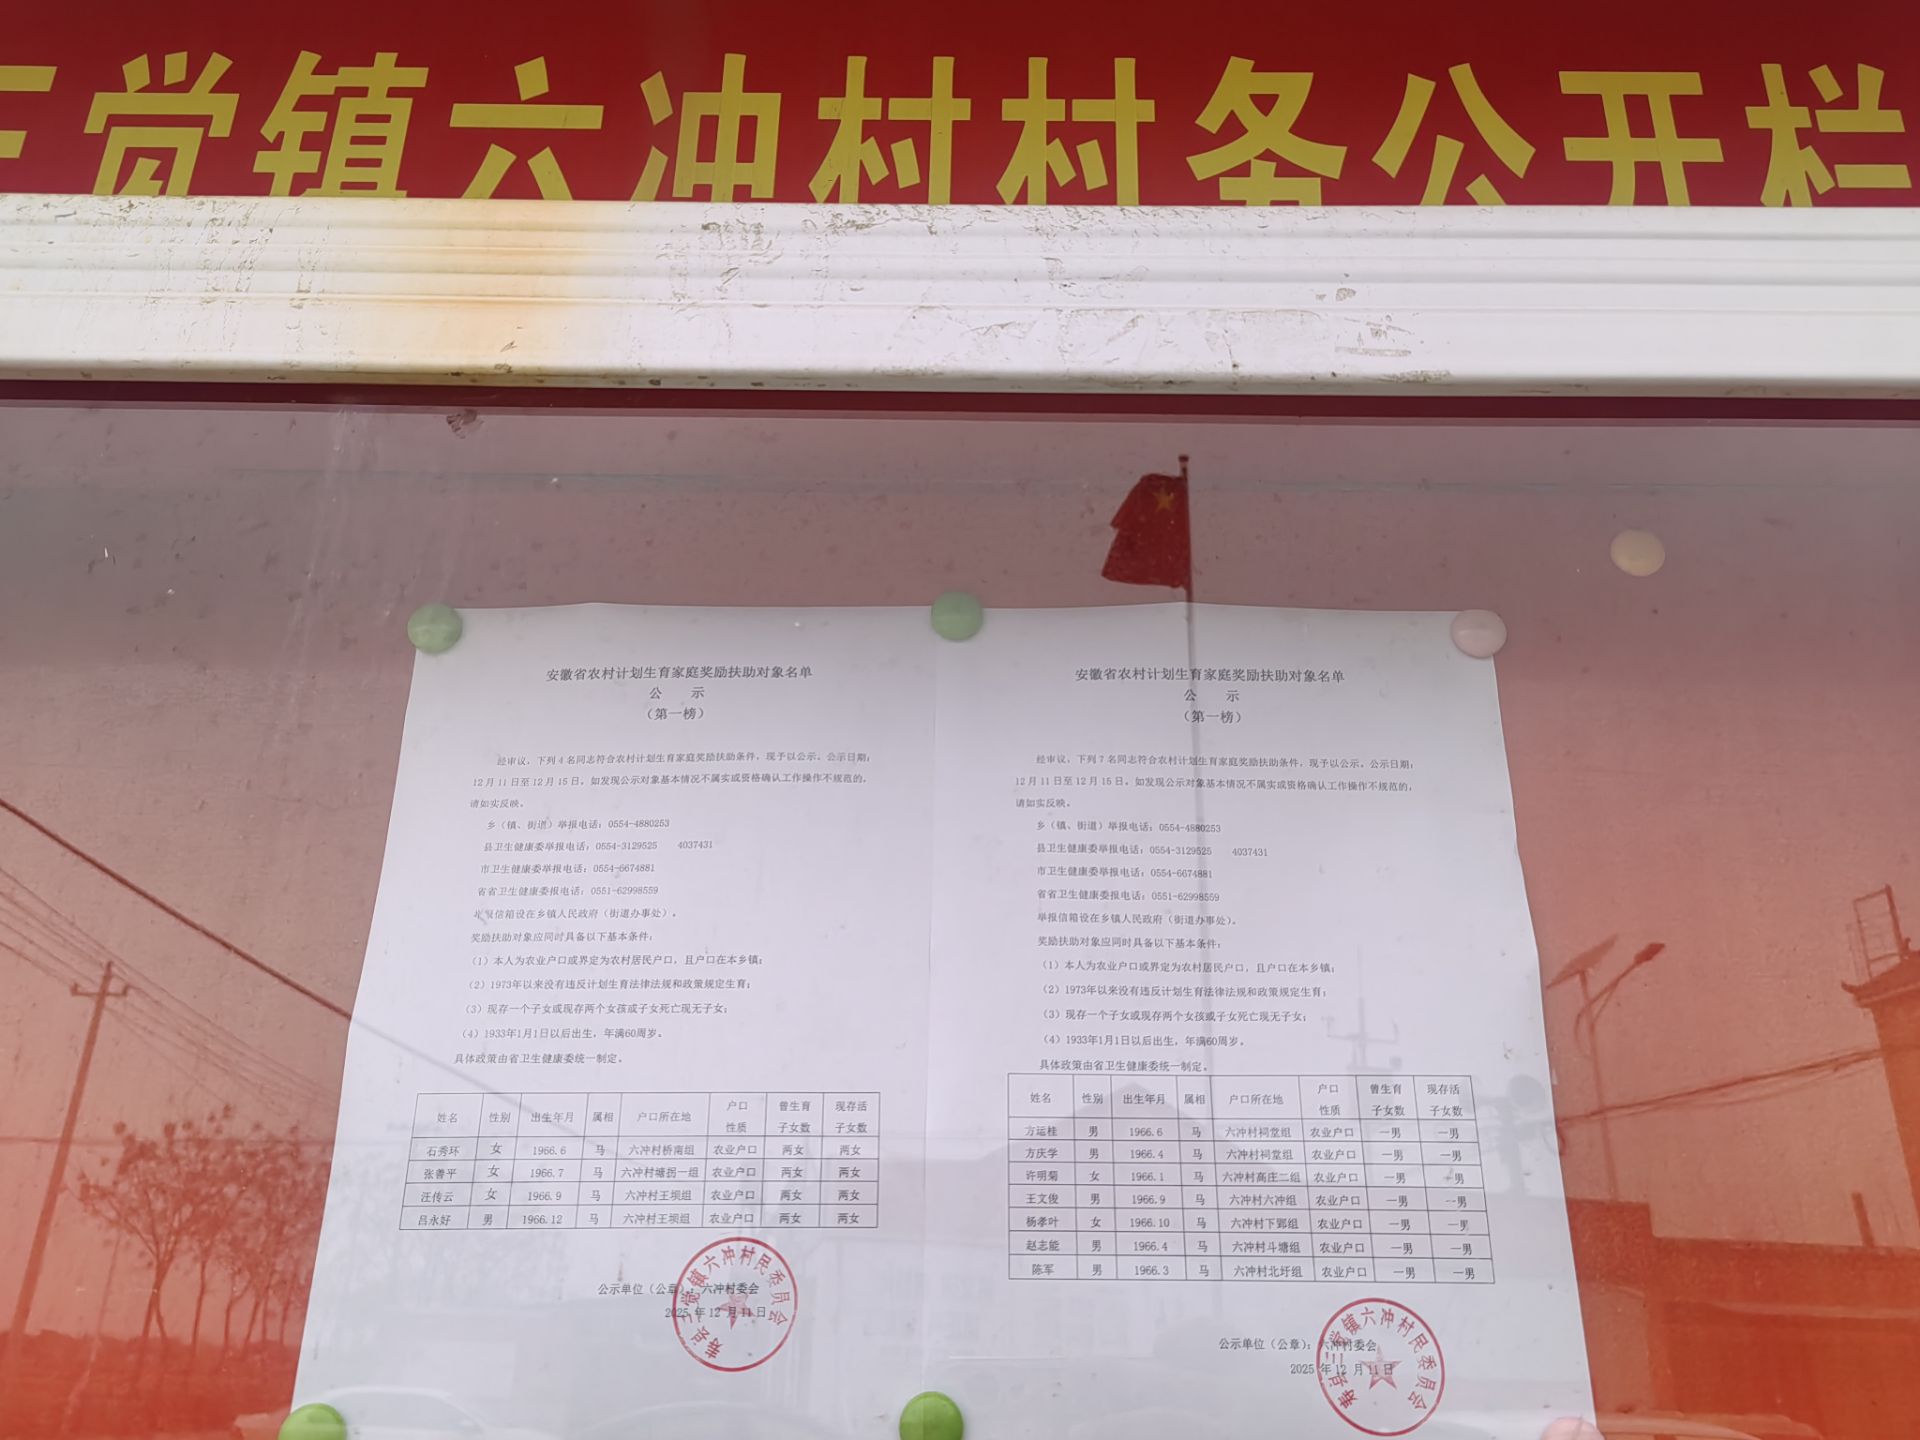 三觉镇六冲村村务公开栏
安徽省农村计划生育家庭奖励扶助对象名单
公 示
（第一榜）
经审议，下列 4 名同志符合农村计划生育家庭奖励扶助条件，现予以公示。公示日期：
12 月 11 日至 12 月 15 日。如发现公示对象基本情况不属实或资格确认工作操作不规范的，
请如实反映。
乡（镇、街道）举报电话：0554-4880253
县卫生健康委举报电话：0554-3129525 4037431
市卫生健康委举报电话：0554-6674881
省省卫生健康委报电话：0551-62998559
举报信箱设在乡镇人民政府（街道办事处）。
奖励扶助对象应同时具备以下基本条件：
（1）本人为农业户口或界定为农村居民户口，且户口在本乡镇；
（2）1973年以来没有违反计划生育法律法规和政策规定生育；
（3）现存一个子女或现存两个女孩或子女死亡现无子女；
（4）1933年1月1日以后出生，年满60周岁。
具体政策由省卫生健康委统一制定。
姓名 性别 出生年月 属相 户口所在地 户口性质 曾生育子女数 现存活子女数
石秀环 女 1966.6 马 六冲村桥南组 农业户口 两女 两女
张善平 女 1966.7 马 六冲村塘拐一组 农业户口 两女 两女
汪传云 女 1966.9 马 六冲村王坝组 农业户口 两女 两女
吕永好 男 1966.12 马 六冲村王坝组 农业户口 两女 两女
公示单位（公章）：六冲村委会
2025 年 12 月 11 日
寿县三觉镇六冲村民委员会
安徽省农村计划生育家庭奖励扶助对象名单
公 示
（第一榜）
经审议，下列 7 名同志符合农村计划生育家庭奖励扶助条件，现予以公示。公示日期：
12 月 11 日至 12 月 15 日。如发现公示对象基本情况不属实或资格确认工作操作不规范的，
请如实反映。
乡（镇、街道）举报电话：0554-4880253
县卫生健康委举报电话：0554-3129525 4037431
市卫生健康委举报电话：0554-6674881
省省卫生健康委报电话：0551-62998559
举报信箱设在乡镇人民政府（街道办事处）。
奖励扶助对象应同时具备以下基本条件：
（1）本人为农业户口或界定为农村居民户口，且户口在本乡镇；
（2）1973年以来没有违反计划生育法律法规和政策规定生育；
（3）现存一个子女或现存两个女孩或子女死亡现无子女；
（4）1933年1月1日以后出生，年满60周岁。
具体政策由省卫生健康委统一制定。
姓名 性别 出生年月 属相 户口所在地 户口性质 曾生育子女数 现存活子女数
方运桂 男 1966.6 马 六冲村祠堂组 农业户口 一男 一男
方庆学 男 1966.4 马 六冲村祠堂组 农业户口 一男 一男
许明菊 女 1966.1 马 六冲村高庄二组 农业户口 一男 一男
王文俊 男 1966.9 马 六冲村六冲组 农业户口 一男 一男
杨孝叶 女 1966.10 马 六冲村下郢组 农业户口 一男 一男
赵志能 男 1966.4 马 六冲村斗塘组 农业户口 一男 一男
陈军 男 1966.3 马 六冲村北圩组 农业户口 一男 一男
公示单位（公章）：六冲村委会
2025 年 12 月 11 日
寿县三觉镇六冲村民委员会